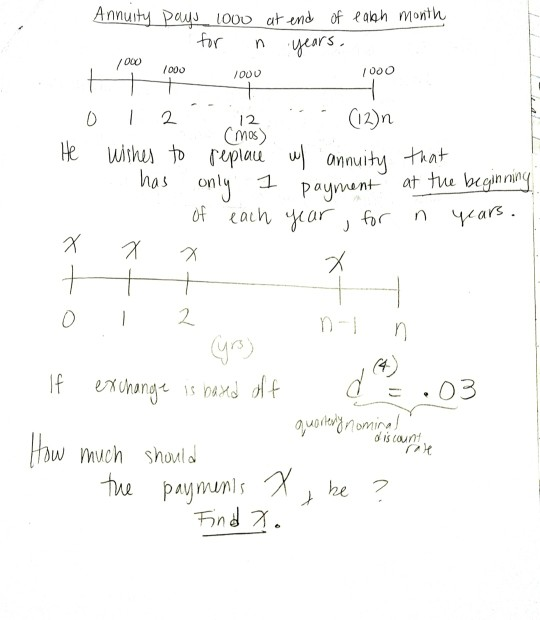 Annuity pays 1000 at end of each month
for n years.
1000 1000 1000 1000
0 1 2 -- -- 12 -- -- (12)n
(mos)
He wishes to replace w/ annuity that
has only 1 payment at the beginning
of each year, for n years.
x x x x
0 1 2 n-1 n
(yrs)
If exchange is based off d^(4) = .03
quarterly nominal
discount
rate
How much should
the payments X, be?
Find X.